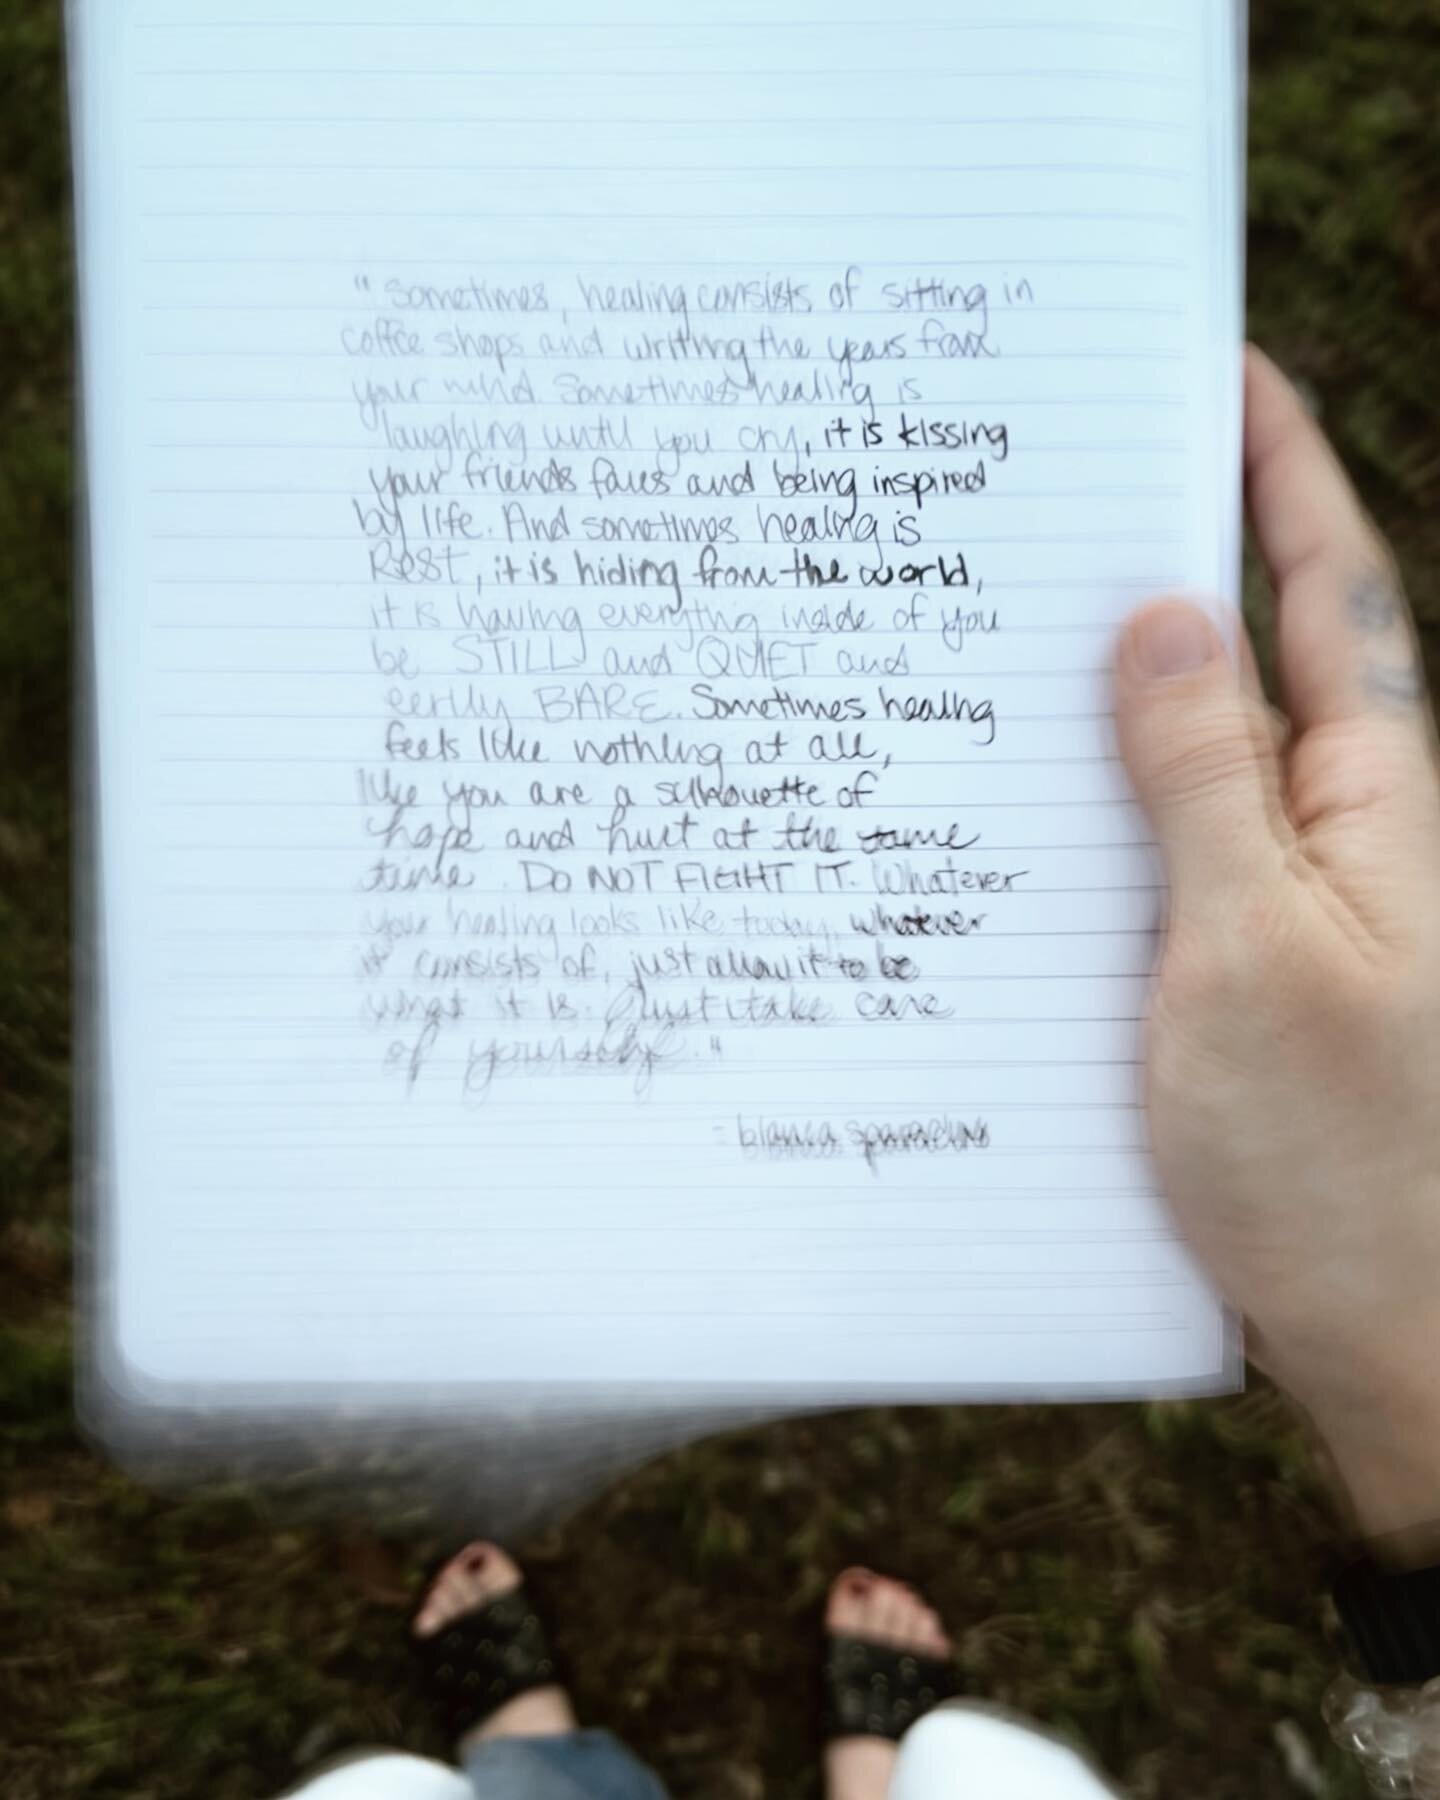 "Sometimes, healing consists of sitting in
coffee shops and writing the years from
your mind. Sometimes healing is
laughing until you cry, it is kissing
your friends faces and being inspired
by life. And sometimes healing is
Rest, it is hiding from the world,
it is having everything inside of you
be STILL and QUIET and
eerily BARE. Sometimes healing
feels like nothing at all,
like you are a silhouette of
hope and hurt at the same
time. DO NOT FIGHT IT. Whatever
your healing looks like today, whatever
it consists of, just allow it to be
what it is. Just take care
of yourself."
- bianca sparacino